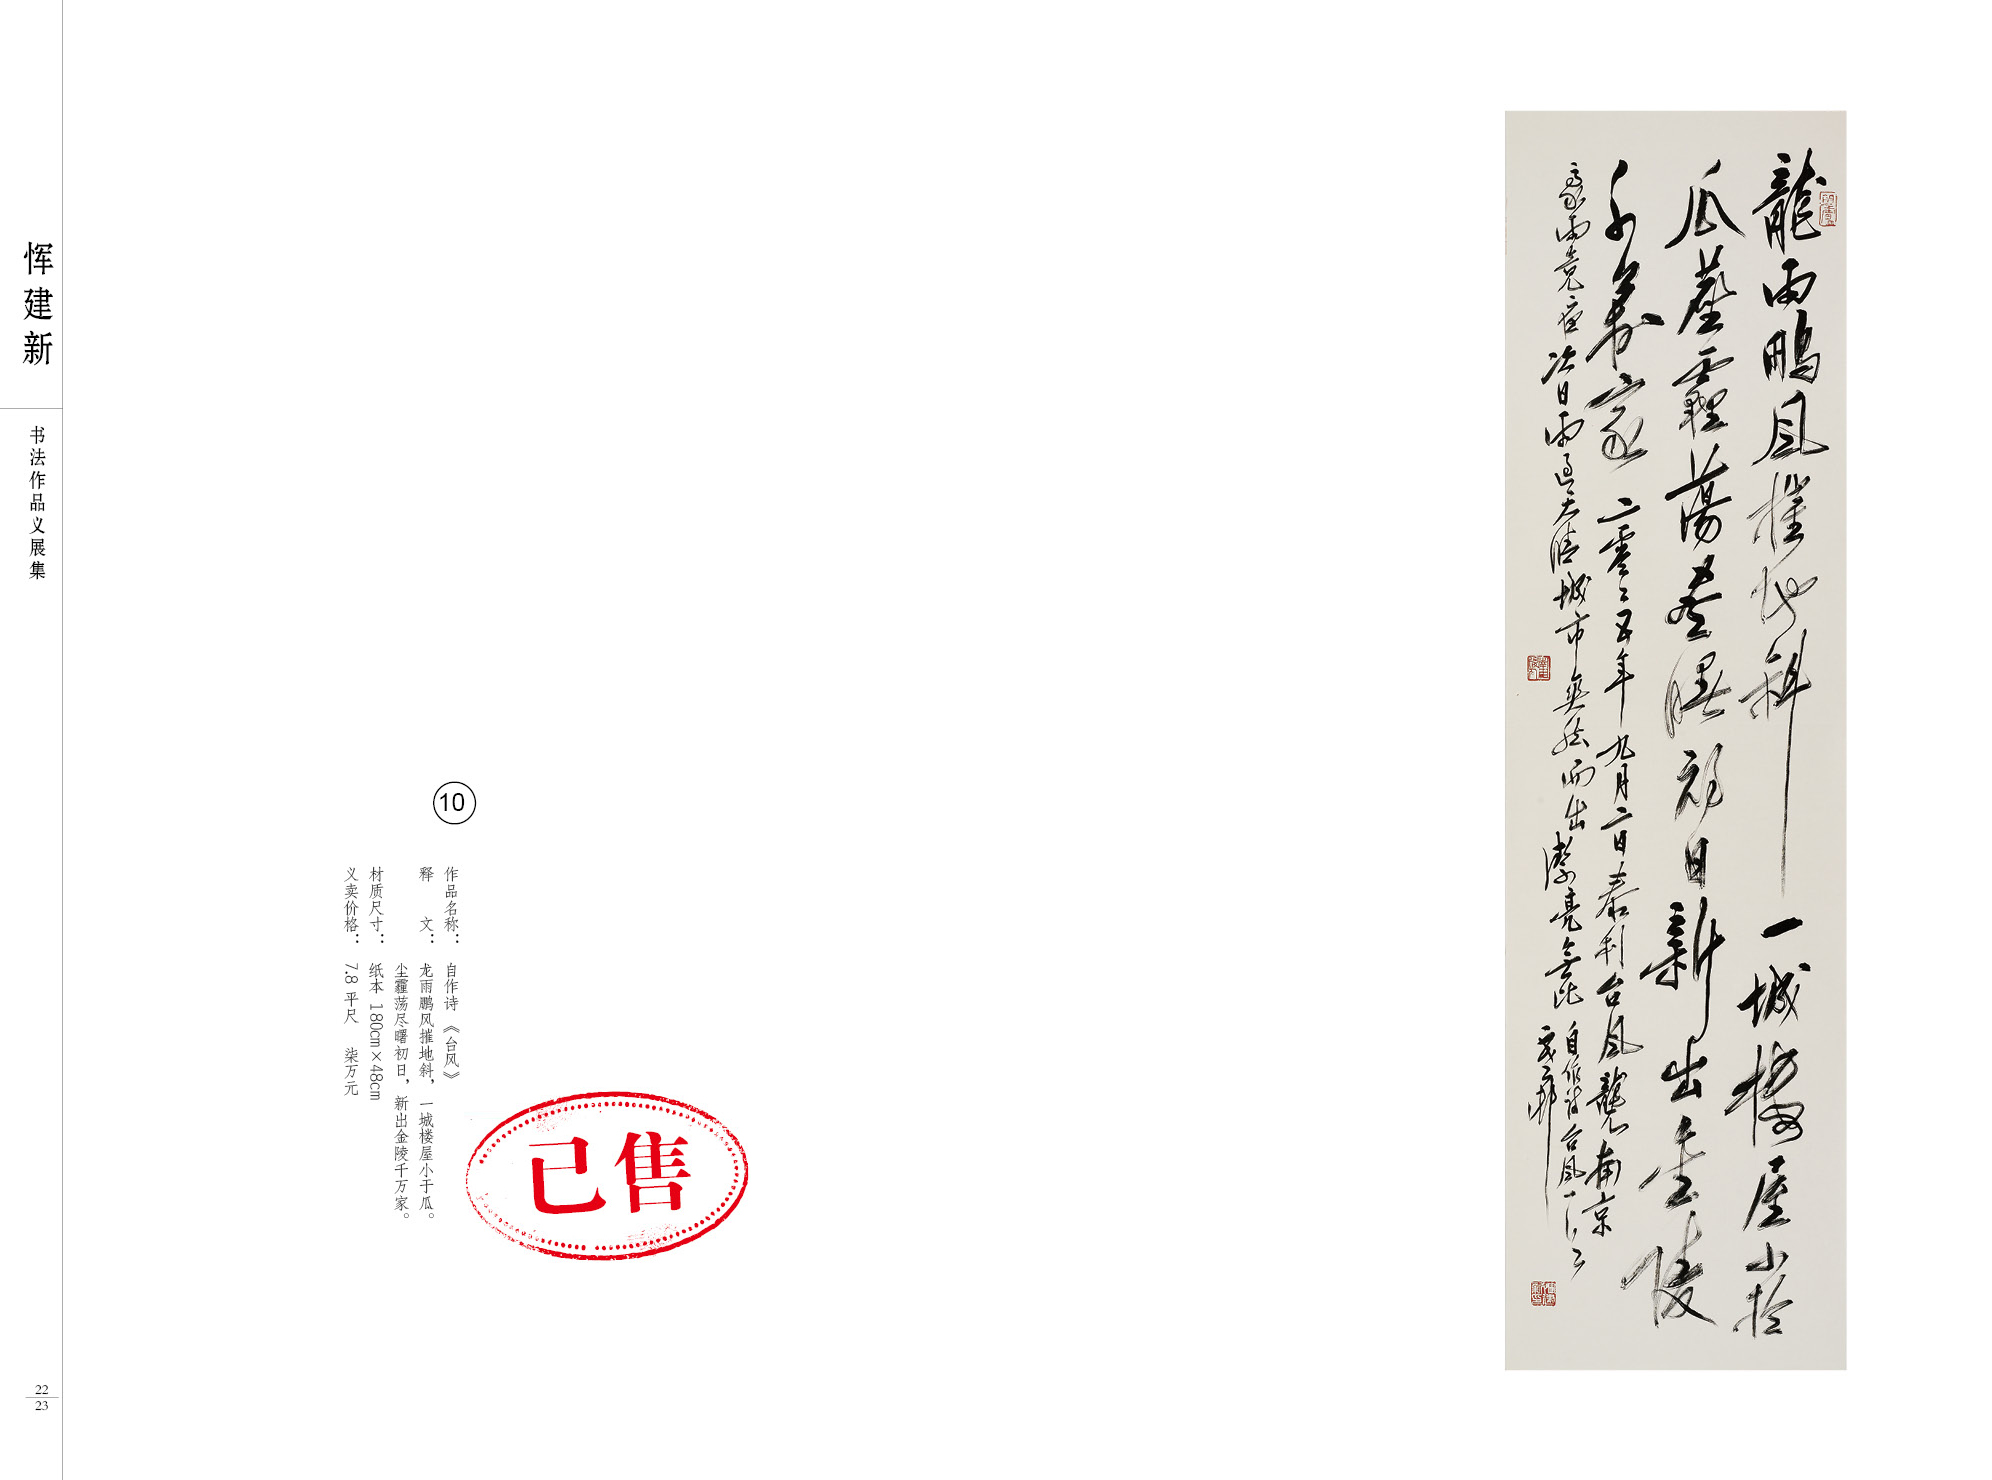 恽建新
书法作品义展集
22
23
10
作品名称： 自作诗《台风》
释 文： 龙雨鹏风摧地斜，一城楼屋小于瓜。
尘霾荡尽曙初日，新出金陵千万家。
材质尺寸： 纸本 180cm×48cm
义卖价格： 7.8 平尺 柒万元
已售
龍雨鵬風摧地斜一城樓屋小於
瓜塵霾蕩盡曙初日新出金陵
千萬家 二零零五年九月二日泰利台风襲南京
豪雨竟夜次日雨過天晴城市奐然而出潔亮無比 自作詩台风一首